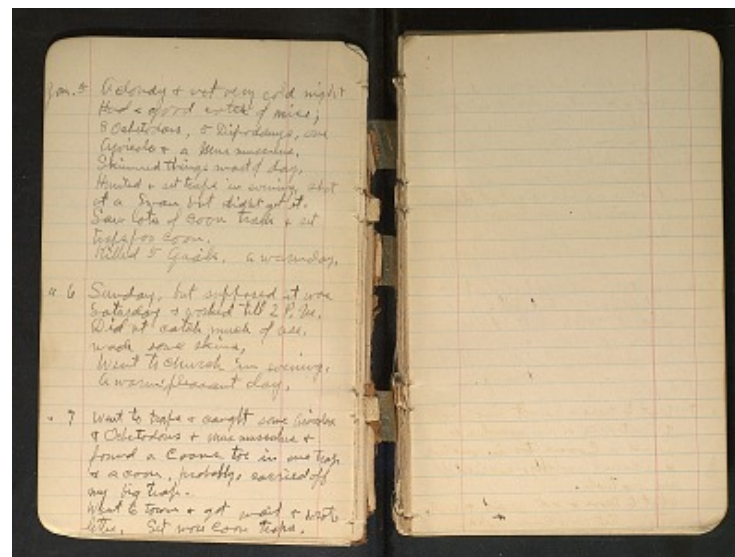 Jan. 5 A cloudy & not very cold night
Had a good catch of mice;
8 Ochetodons, 5 Dipodomys, one
Arvicola & a Mus musculus.
Skinned things most of day.
Hunted & set traps in evening, shot
at a Swan but didnt get it.
Saw lots of coon tracks & set
traps for coon.
Killed 5 Quails. a warm day.
" 6 Sunday, but supposed it was
Saturday & worked till 2 P.M.
Did nt catch much of use.
made some skins,
Went to church in evening.
A warm pleasant day.
" 7 Went to traps & caught some Arvicola
& Ochetodons & Mus musculus &
found a Coons toe in one trap
& a coon, probably, carried off
my big trap.
Went to town & got mail & wrote
letter. Set more Coon traps.